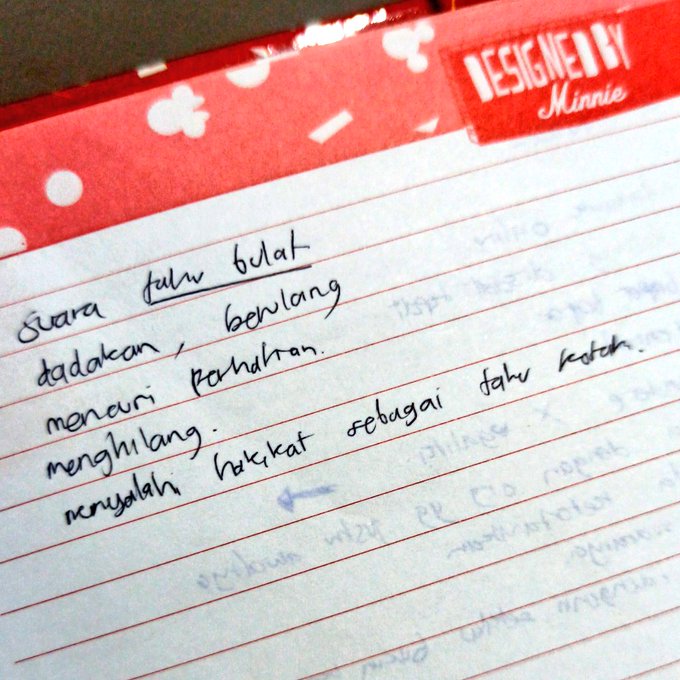 DESIGNED BY
Minnie
suara tahu bulat
dadakan, berulang
mencuri perhatian.
menghilang.
menyalahi hakikat sebagai tahu kotak.